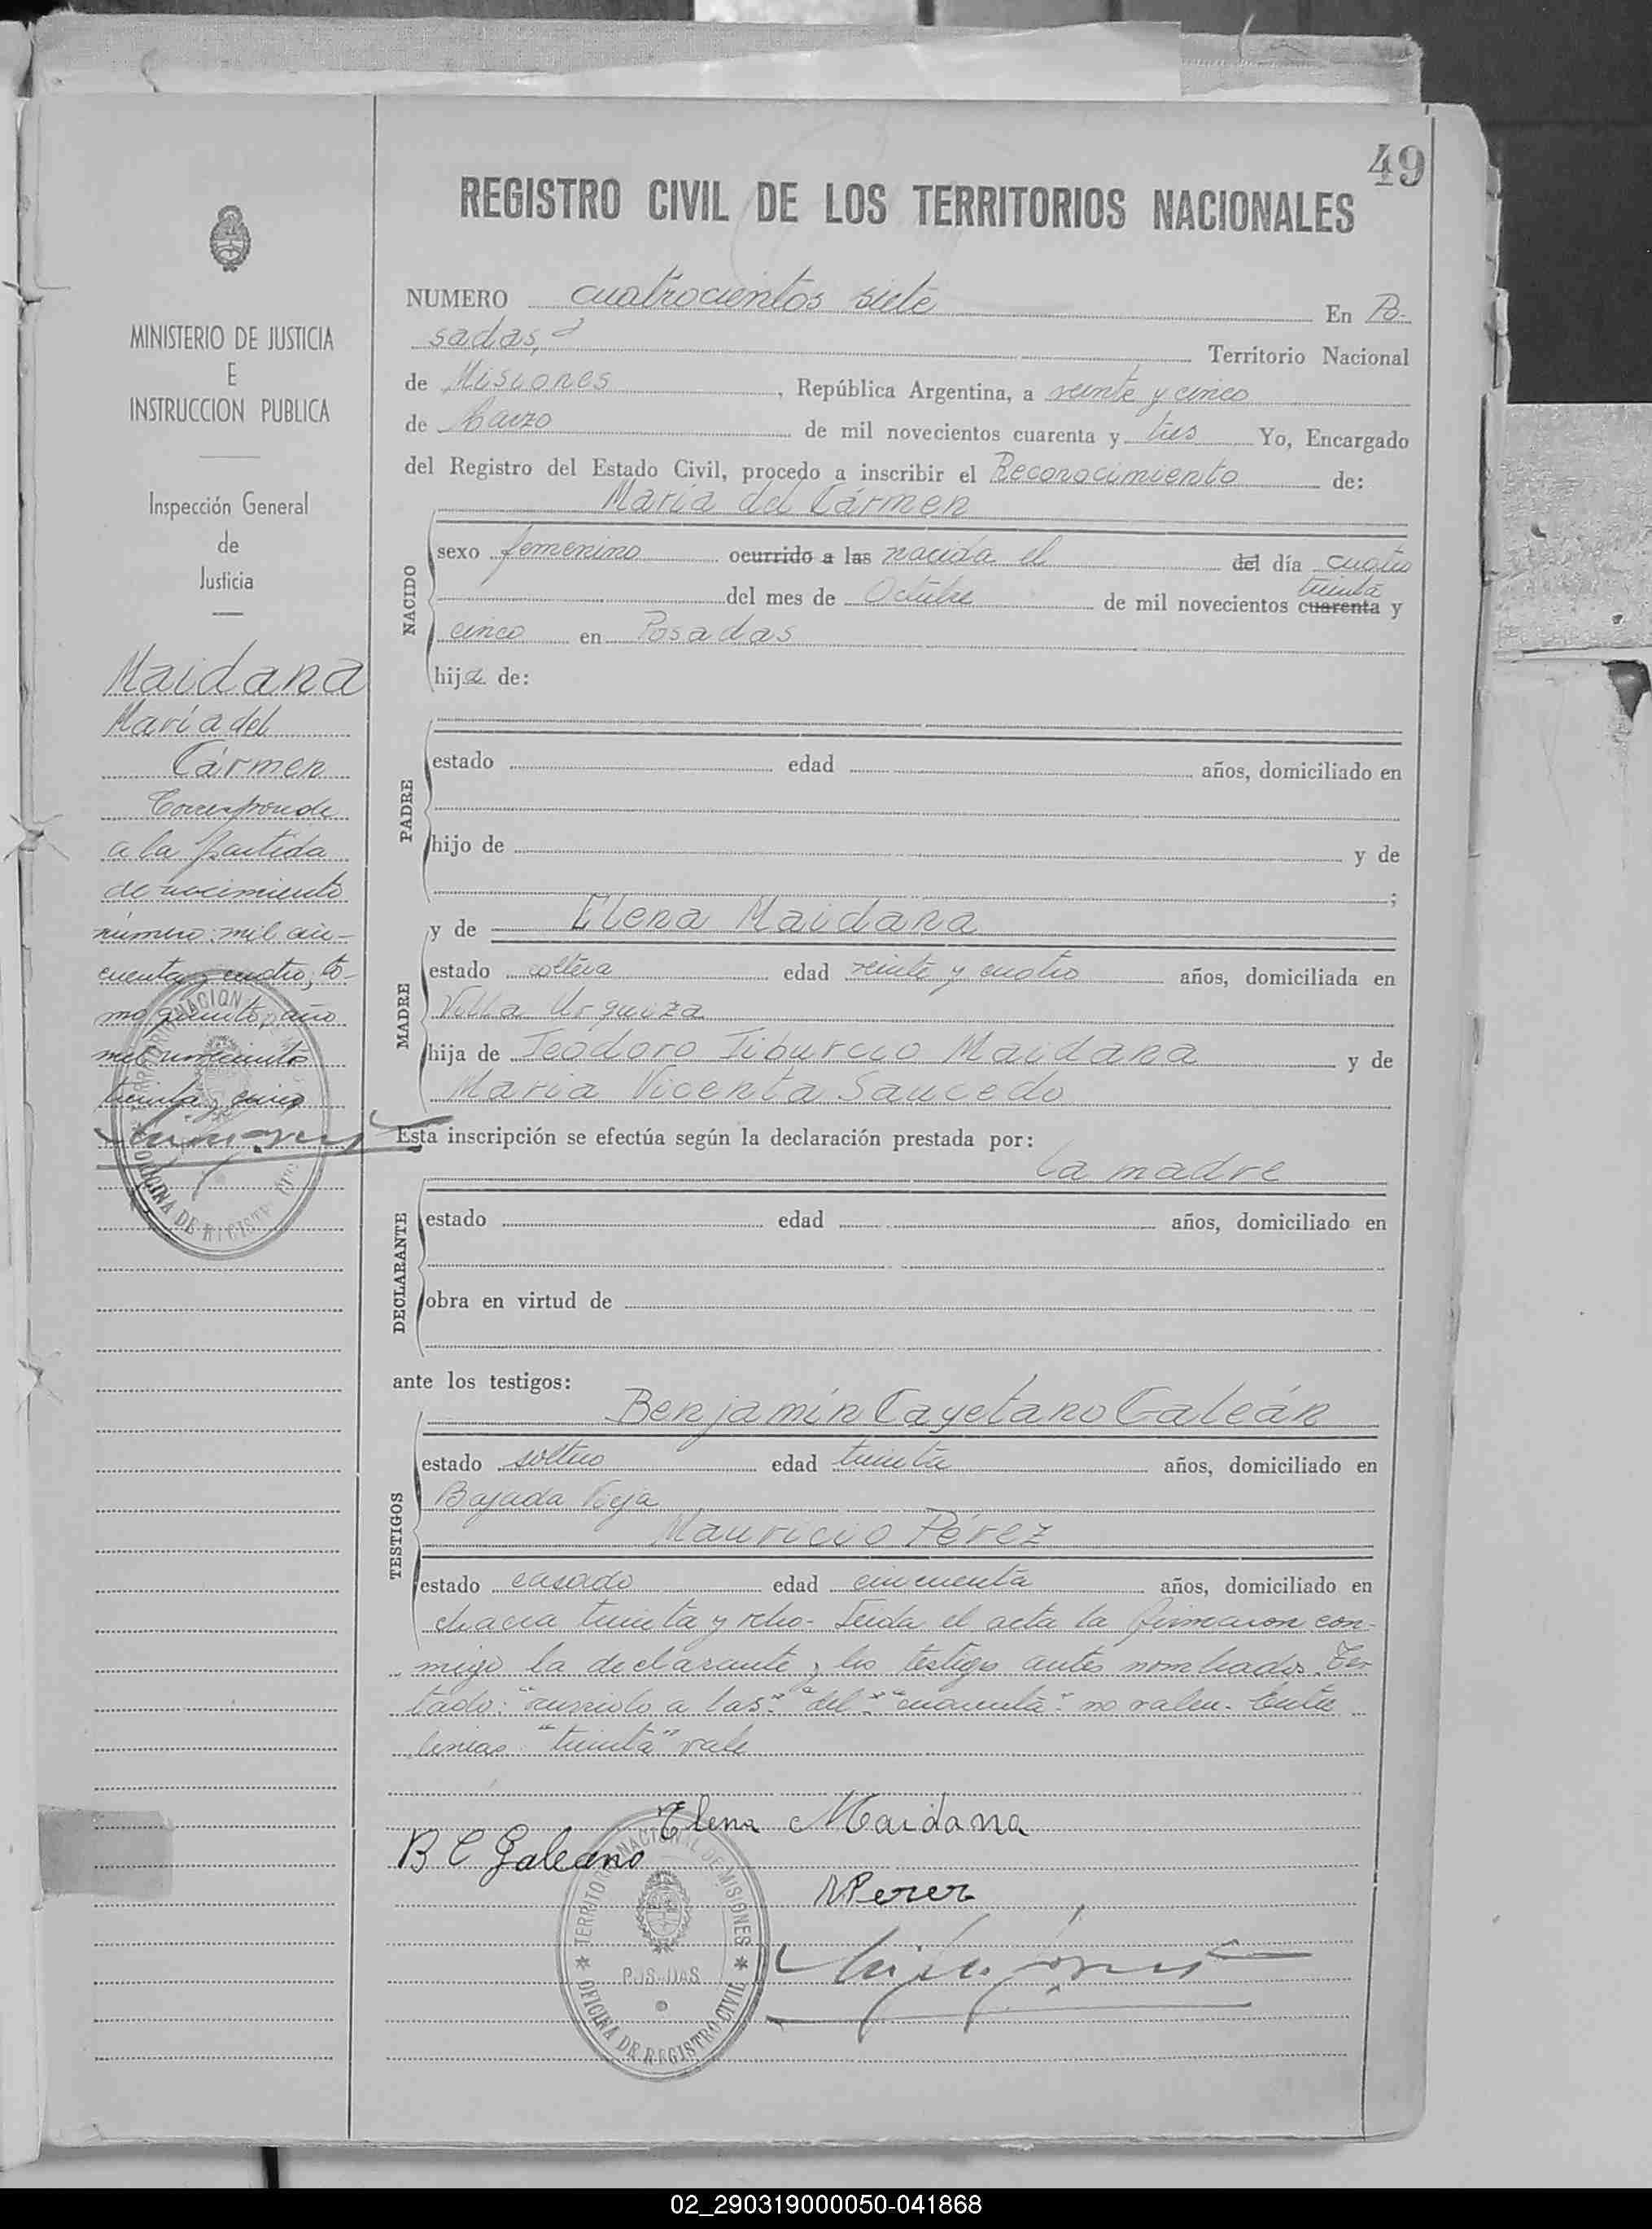 49
REGISTRO CIVIL DE LOS TERRITORIOS NACIONALES
MINISTERIO DE JUSTICIA
E
INSTRUCCION PUBLICA
Inspección General
de
Justicia
Maidana
María del
Cármen
Corresponde
a la partida
de nacimiento
número: mil cin-
cuenta y cuatro, to-
mo quinto, año
mil novecientos
treinta y cinco
NUMERO cuatrocientos siete En Po-
sadas, Territorio Nacional
de Misiones, República Argentina, a veinte y cinco
de Marzo de mil novecientos cuarenta y tres Yo, Encargado
del Registro del Estado Civil, procedo a inscribir el Reconocimiento de:
María del Cármen
NACIDO
sexo femenino ocurrido a las nacida el del día cuatro
treinta
del mes de Octubre de mil novecientos cuarenta y
cinco en Posadas
hija de:
PADRE
estado edad años, domiciliado en
hijo de y de
;
MADRE
y de Elena Maidana
estado soltera edad veinte y cuatro años, domiciliada en
Villa Urquiza
hija de Teodoro Tiburcio Maidana y de
María Vicenta Saucedo
Esta inscripción se efectúa según la declaración prestada por:
la madre
DECLARANTE
estado edad años, domiciliado en
obra en virtud de
ante los testigos:
TESTIGOS
Benjamín Cayetano Galeán
estado soltero edad treinta años, domiciliado en
Bajada Vieja
Mauricio Pérez
estado casado edad cincuenta años, domiciliado en
chacra treinta y ocho- Leída el acta la firmaron con-
migo la declarante y los testigos antes nombrados. Tes-
tado: "ocurrido a las" "del" "cuarenta" no valen. Entre
lineas "treinta" vale
Elena Maidana
B C Galeano
MPerez
TERRITORIO NACIONAL DE MISIONES
POSADAS
OFICINA DE REGISTRO CIVIL
02_290319000050-041868